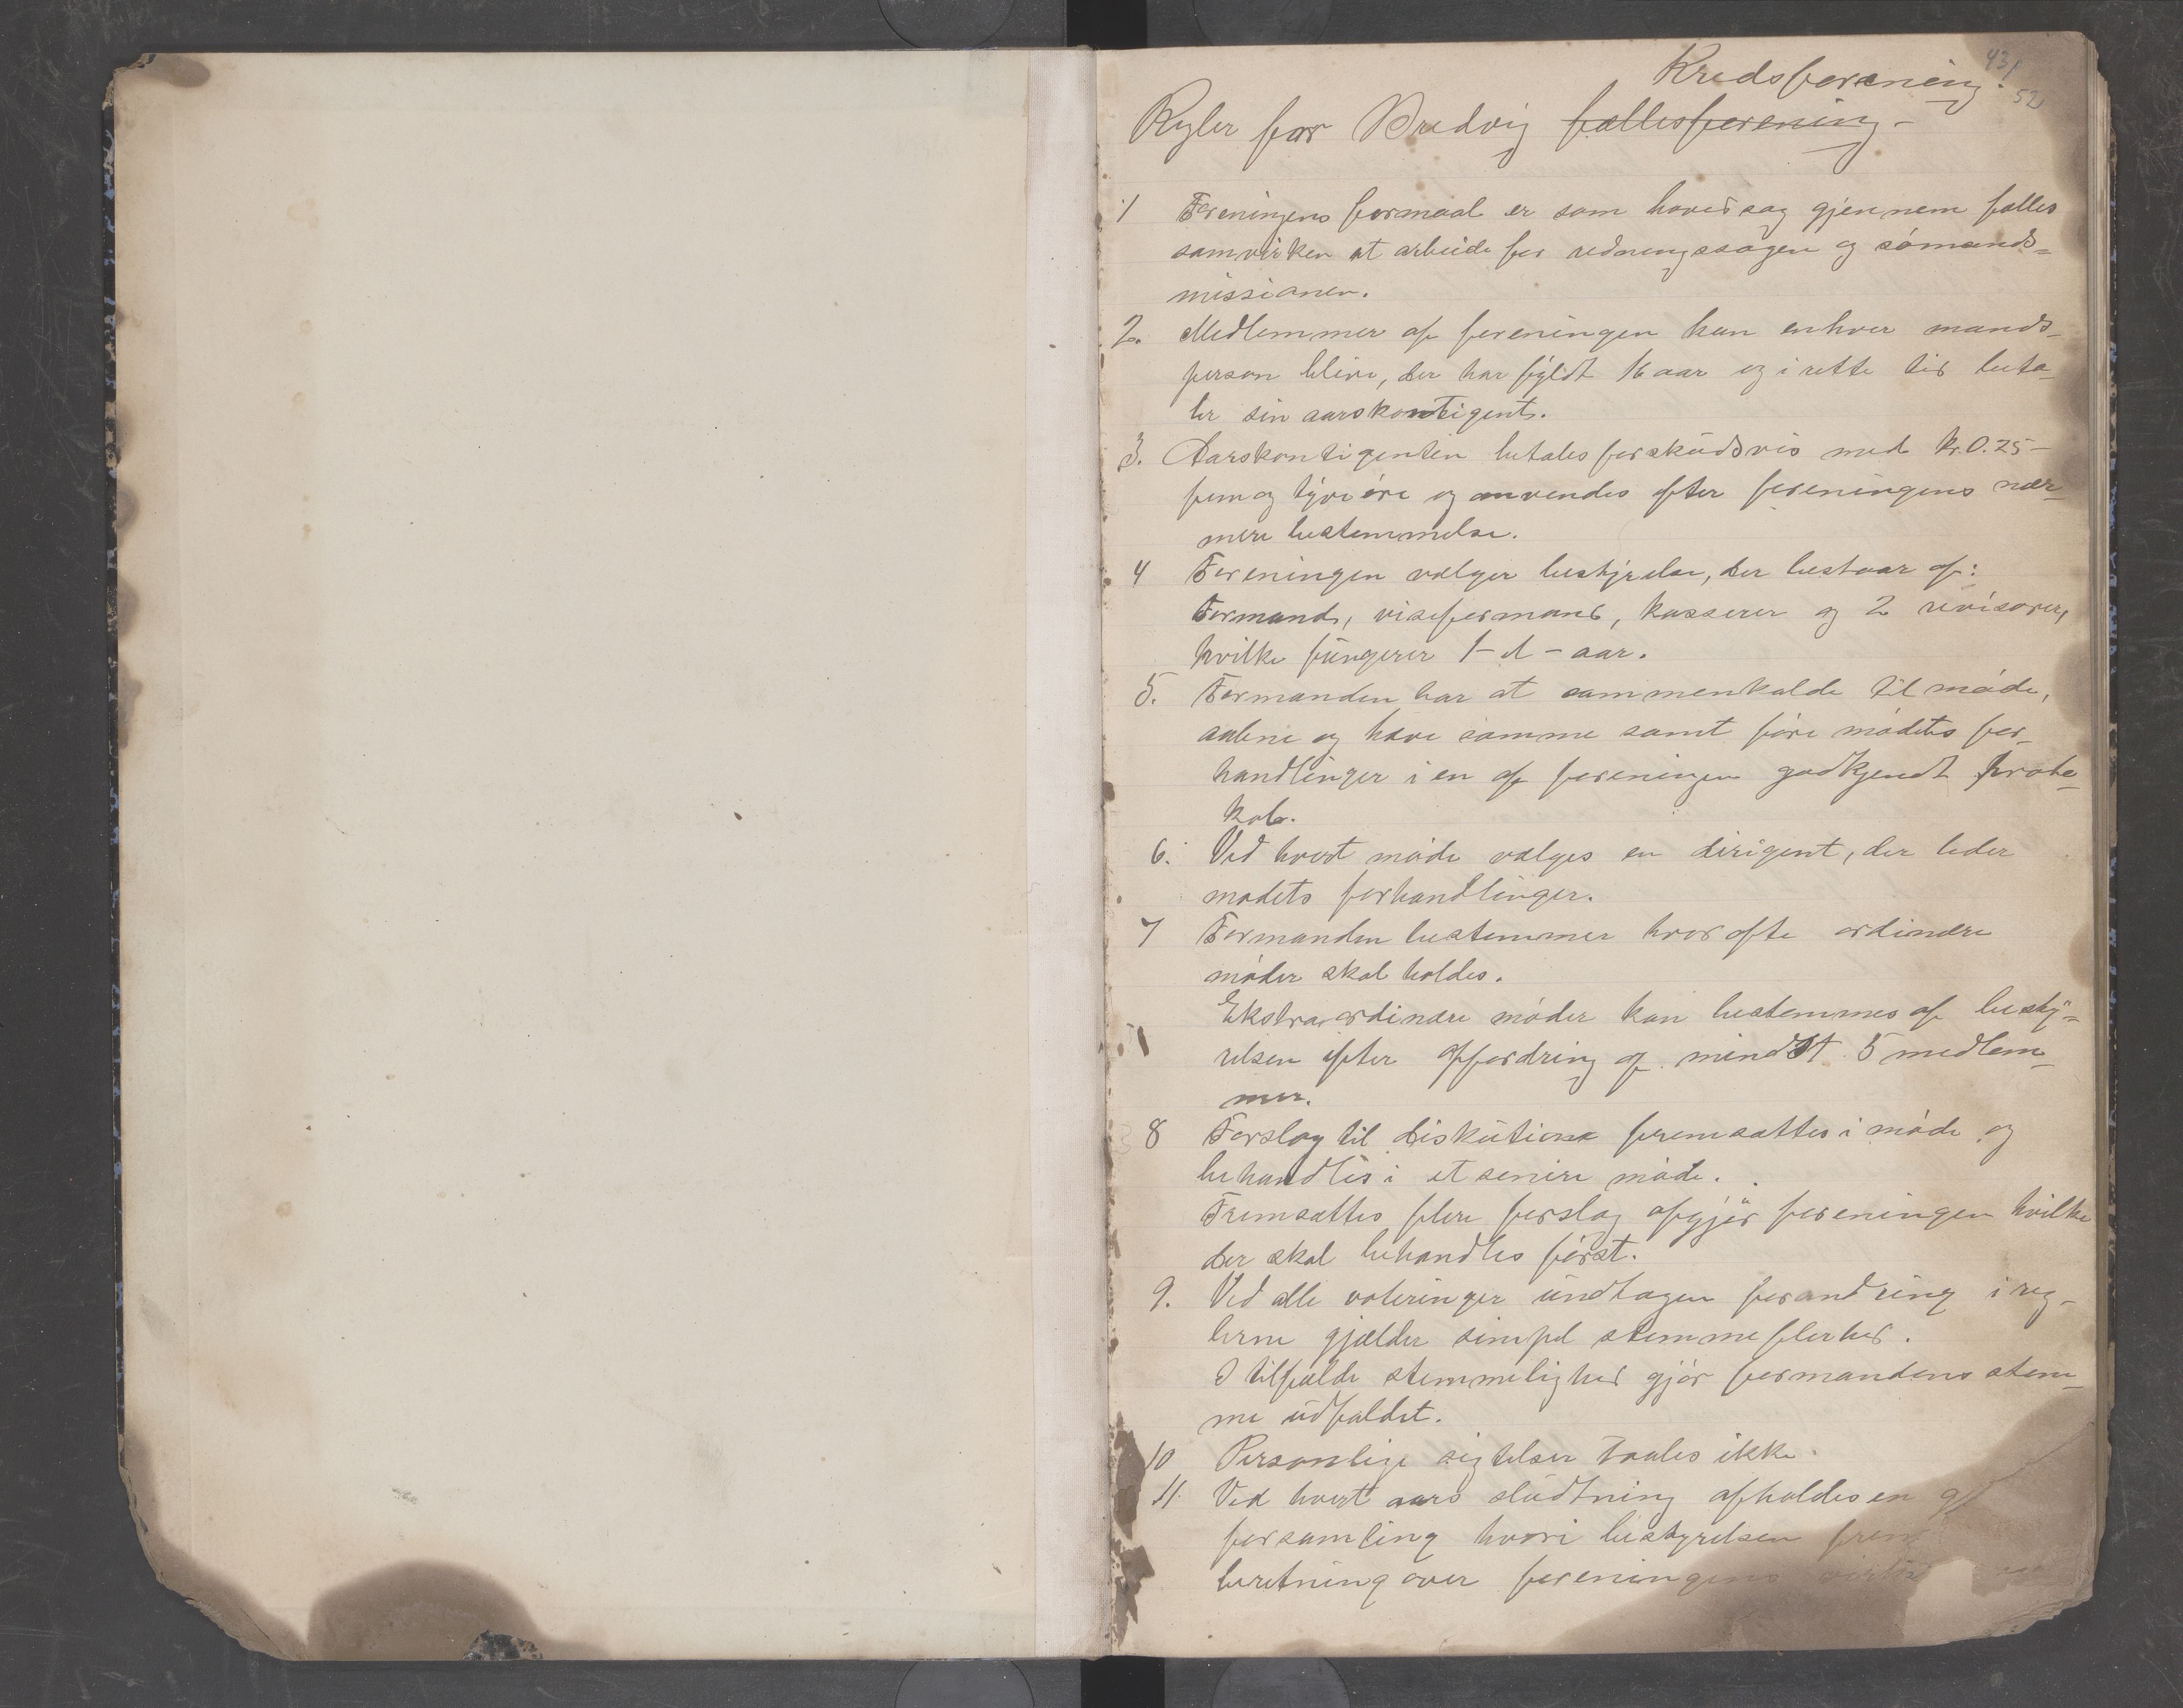 431
52
Kredsforening.
Regler for Bredvig fællesforening -
1 Foreningens formaal er som hovedsag gjennem fælles
samvirken at arbeide for redningssagen og sømands-
missionen.
2. Medlemmer af foreningen kan enhver mands-
person blive, der har fyldt 16 aar og i rette tid beta-
ler sin aarskontigent.
3. Aarskontigenten betales forskudsvis med kr. 0.25 -
fem og tyve øre og anvendes efter foreningens nær-
mere bestemmelse.
4 Foreningen vælger bestyrelse, der bestaar af:
Formand, viseformand, kasserer og 2 revisorer,
hvilke fungerer 1 - et - aar.
5. Formanden har at sammenkalde til møde,
aabne og hæve samme samt føre mødets for-
handlinger i en af foreningen godkjendt proto-
kol.
6. Ved hvert møde vælges en dirigent, der leder
mødets forhandlinger.
7 Formanden bestemmer hvor ofte ordinære
møder skal holdes.
Ekstraordinære møder kan bestemmes af besty-
relsen efter opfordring af mindst 5 medlem-
mer.
8 Forslag til diskution fremsættes i møde og
behandles i et senere møde.
Fremsættes flere forslag afgjør foreningen hvilke
der skal behandles først.
9. Ved alle voteringer undtagen forandring i reg-
lerne gjælder simpel stemmeflerhed.
I tilfælde stemmelighed gjør formandens stem-
me udfaldet.
10 Personlige sigtelser taales ikke.
11. Ved hvert aars sludtning afholdes en
forsamling hvori bestyrelsen frem
beretning over foreningens